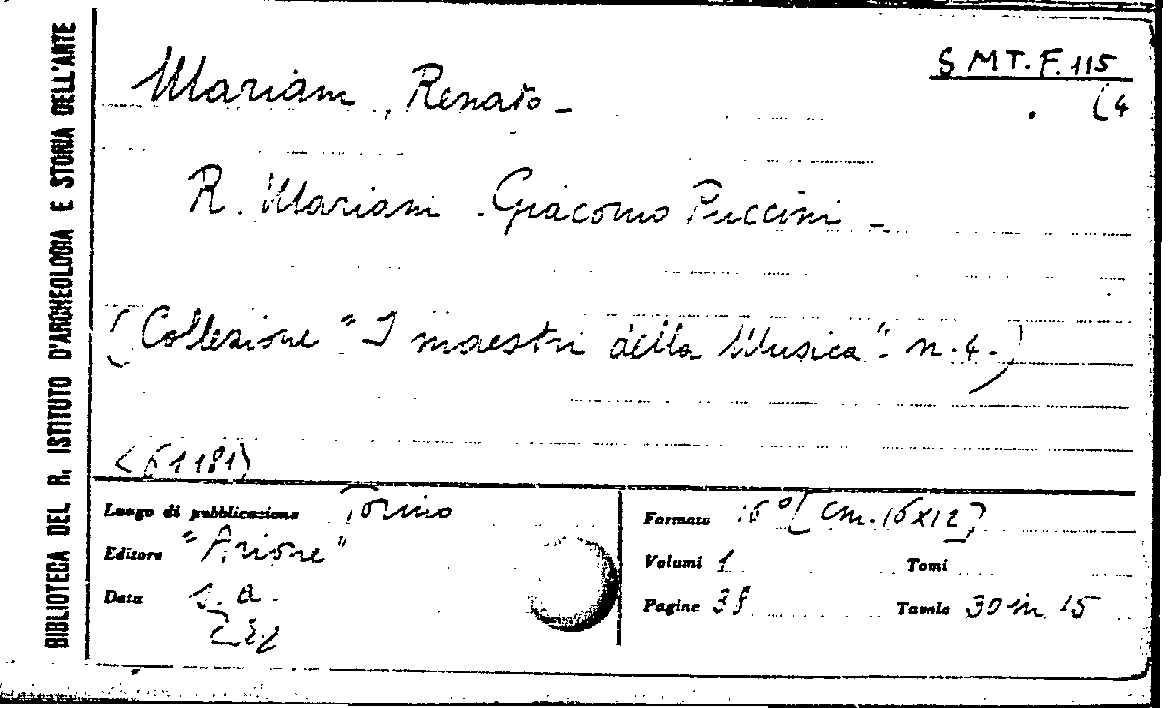 BIBLIOTECA DEL R. ISTITUTO D'ARCHEOLOGIA E STORIA DELL'ARTE
S MT. F. 115
(4
Mariani, Renato -
R. Mariani - Giacomo Puccini -
(Collezione "I maestri della Musica" - n. 4 -)
(61181)
Luogo di pubblicazione Torino
Editore "Arione"
Data s. a.
Formato 16° [cm. 16x12]
Volumi 1 Tomi
Pagine 38 Tavole 30 in 15